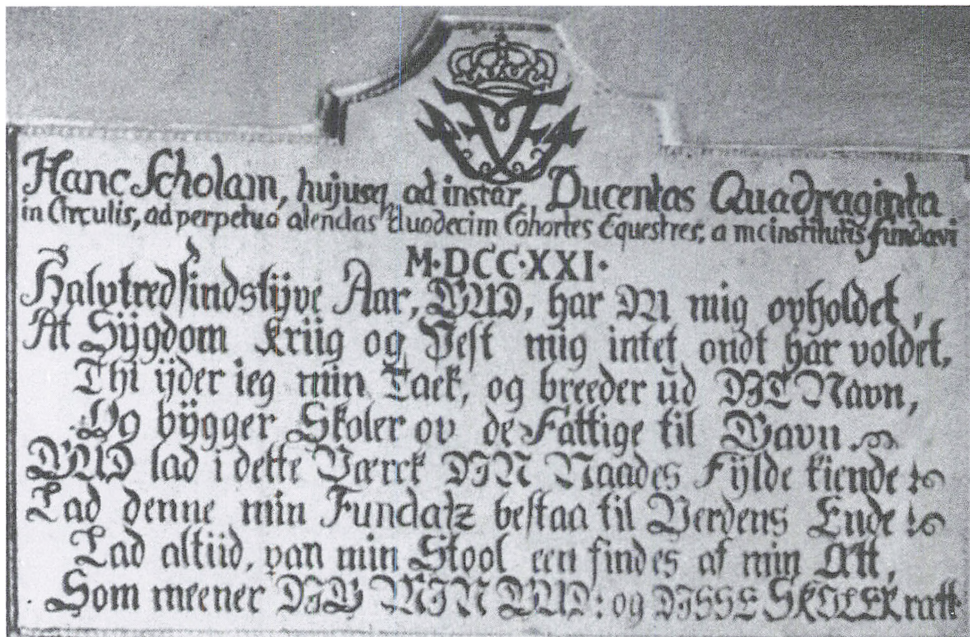 Hanc Scholam, hujusq, ad instar, Ducentas Quadraginta
in Circulis, ad perpetuo alendas duodecim Cohortes Equestres, a me institutis fundavi
M·DCC·XXI·
Halvtredsindstÿve Aar, GUD, har DU mig opholdet,
At Sÿgdom, Kriig og Pest mig intet ondt har voldet,
Thi ÿder ieg min Tack, og breeder ud DIT Navn,
Og bÿgger Skoler op de Fattige til Gavn.
GUD lad i dette Værck DIN Naades Fÿlde kiende!
Lad denne min Fundatz bestaa til Verdens Ende!
Lad altiid, paa min Stool een findes af min Ætt,
Som meener DIG MIN GUD: og DISSE SKOLER rætt.